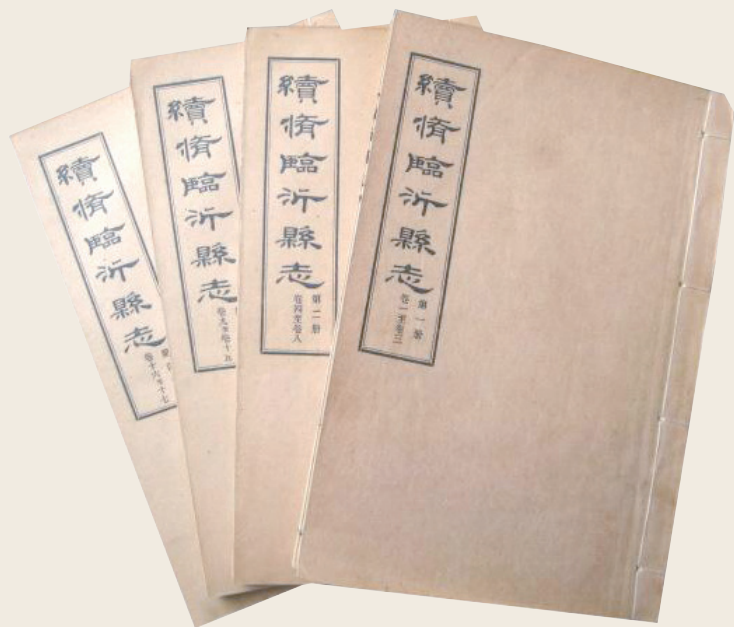 續脩臨沂縣志
第一册
卷一至卷三
續脩臨沂縣志
第二册
卷四至卷八
續脩臨沂縣志
卷九至卷十五
續脩臨沂縣志
卷十六至十七